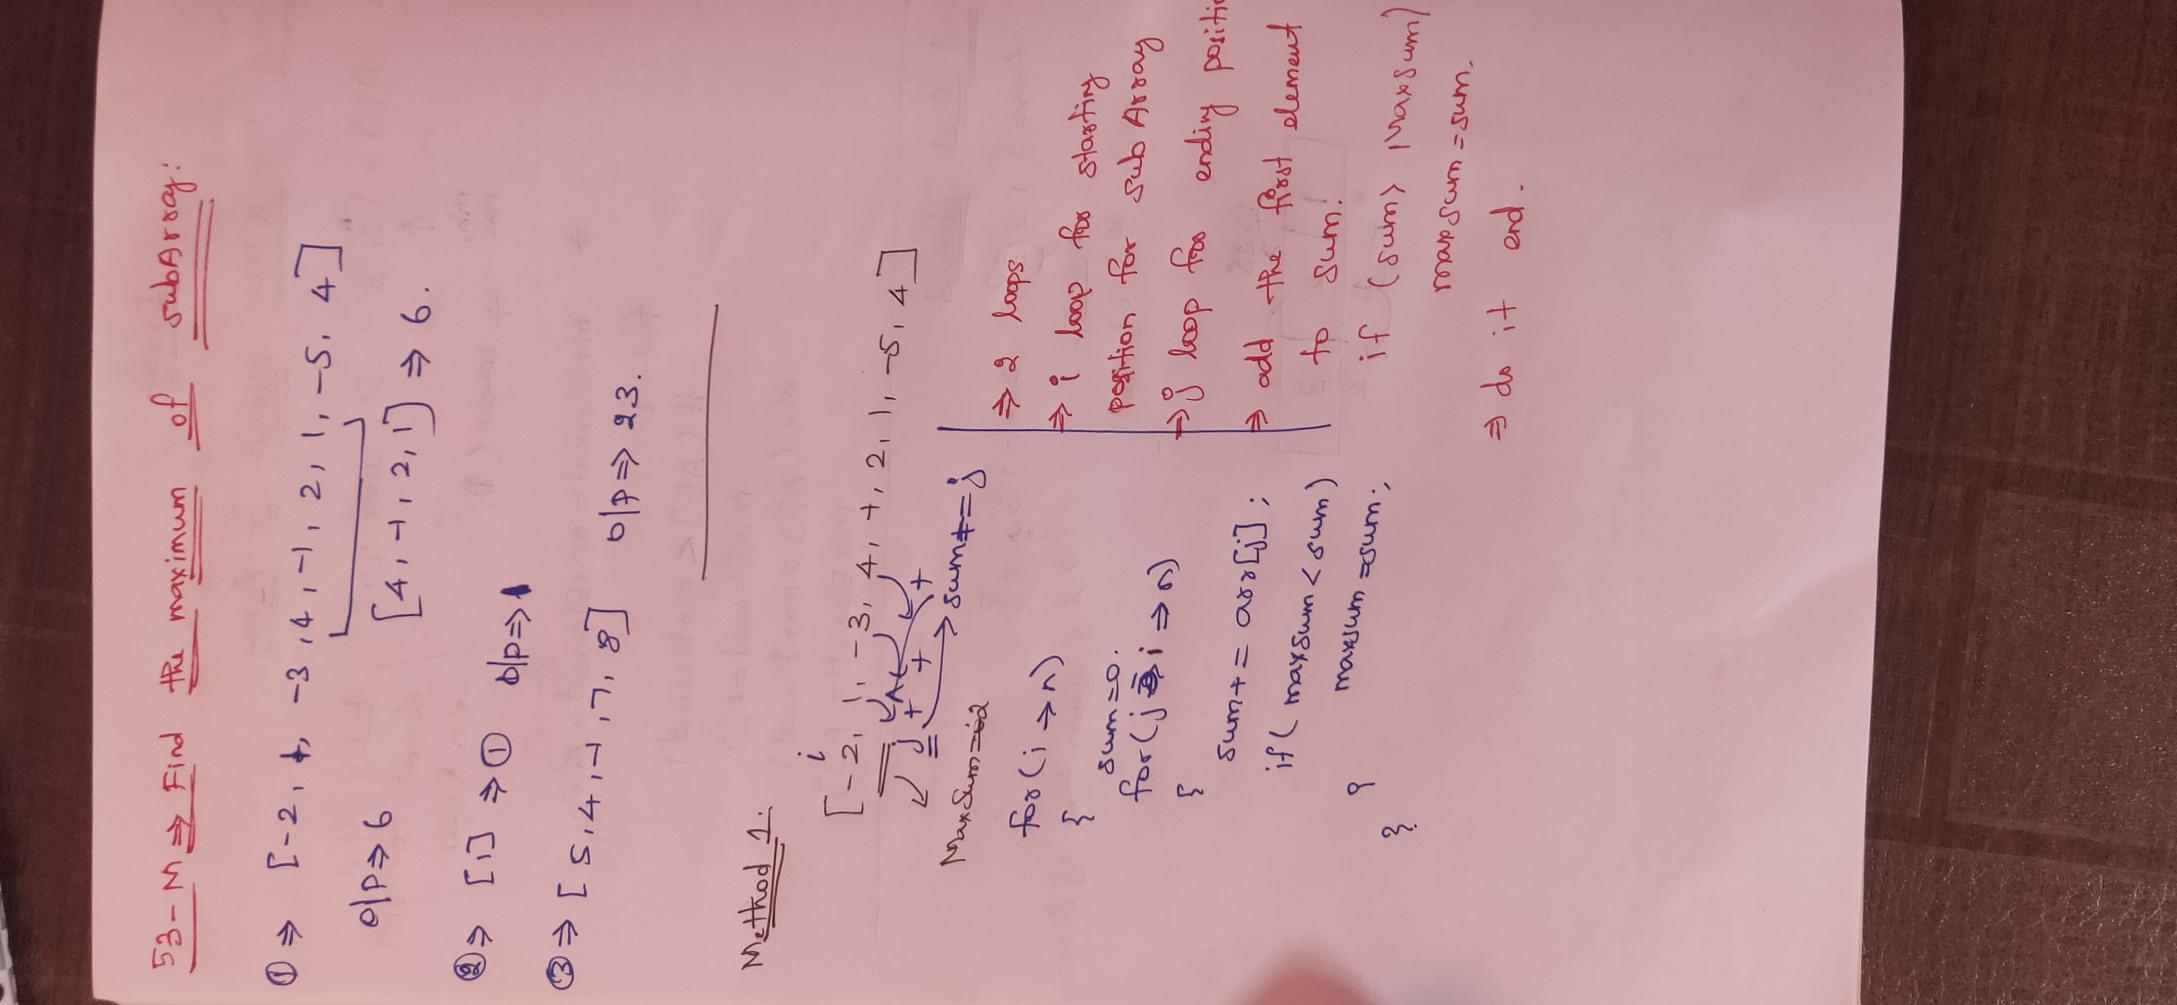 53-M ⇒ Find the maximum of subArray:
① ⇒ [-2, 1, -3, 4, -1, 2, 1, -5, 4]
o/p ⇒ 6 [4, -1, 2, 1] ⇒ 6.
② ⇒ [1] ⇒ ① o/p ⇒ 1
③ ⇒ [5, 4, -1, 7, 8] o/p ⇒ 23.
Method 1.
i
[-2, 1, -3, 4, -1, 2, 1, -5, 4]
j + + +
→ sum += j
MaxSum =
for(i → n)
{
sum=0.
for(j = i ⇒ n)
{
sum += arr[j];
if(maxsum < sum)
maxsum = sum;
}
}
⇒ 2 loops
⇒ i loop for starting
position for sub Array
⇒ j loop for ending positi
⇒ add the first element
to sum.
if (sum > Maxsum)
maxsum = sum.
⇒ do it end.